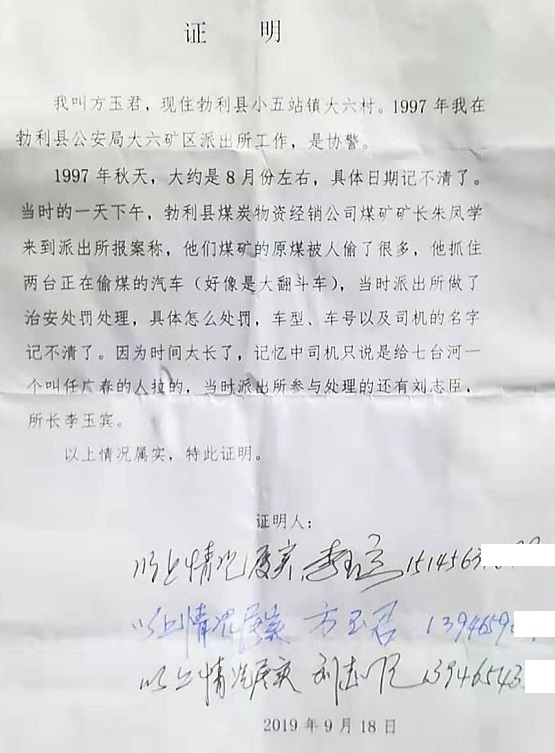 证 明
我叫方玉君，现住勃利县小五站镇大六村。1997 年我在
勃利县公安局大六矿区派出所工作，是协警。
1997 年秋天，大约是 8 月份左右，具体日期记不清了。
当时的一天下午，勃利县煤炭物资经销公司煤矿矿长朱凤学
来到派出所报案称，他们煤矿的原煤被人偷了很多，他抓住
两台正在偷煤的汽车（好像是大翻斗车），当时派出所做了
治安处罚处理，具体怎么处罚，车型、车号以及司机的名字
记不清了。因为时间太长了，记忆中司机只说是给七台河一
个叫任广春的人拉的，当时派出所参与处理的还有刘志臣，
所长李玉宾。
以上情况属实，特此证明。
证明人：
以上情况属实 李玉宾 1514563
以上情况属实 方玉君 1394659
以上情况属实 刘志臣 13946543
2019 年 9 月 18 日